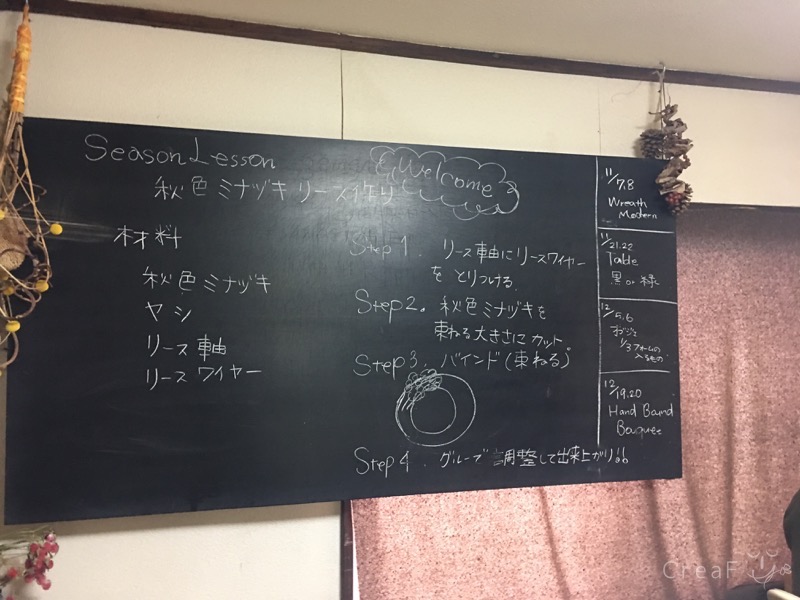 Season Lesson
Welcome
秋色ミナヅキリース作り
材料
秋色ミナヅキ
ヤシ
リース軸
リースワイヤー
Step 1. リース軸にリースワイヤー
をとりつける。
Step2. 秋色ミナヅキを
束ねる大きさにカット。
Step3. バインド(束ねる)
Step4. グルーブ調整して出来上がり
11/7.8
Wreath
Modern
11/21.22
Table
黒or緑
12/5.6
オブジェ
1/3フォームの
入るもの
12/19.20
Hand Bound
Bouquet
CreaF